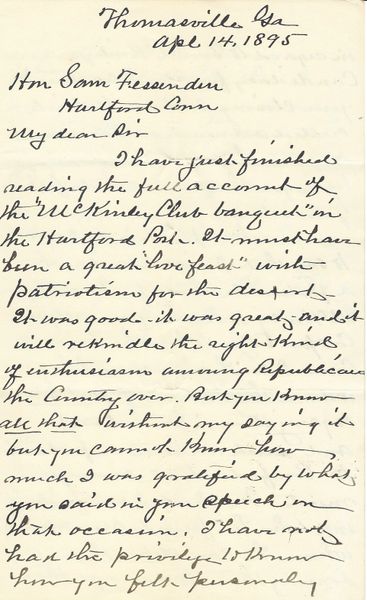 Thomasville Ga
Apl 14, 1895
Hon Sam Fessenden
Hartford Conn
My dear Sir
I have just finished
reading the full account of
the "McKinley Club banquet" in
the Hartford Post. It must have
been a great "love feast" with
patriotism for the desert
It was good - it was great - and it
will rekindle the right kind
of enthusiasm among Republicans
the Country over. But you know
all that without my saying it
but you cannot know how
much I was gratified by what
you said in your speech on
that occasion. I have not
had the privilege to know
how you felt personally